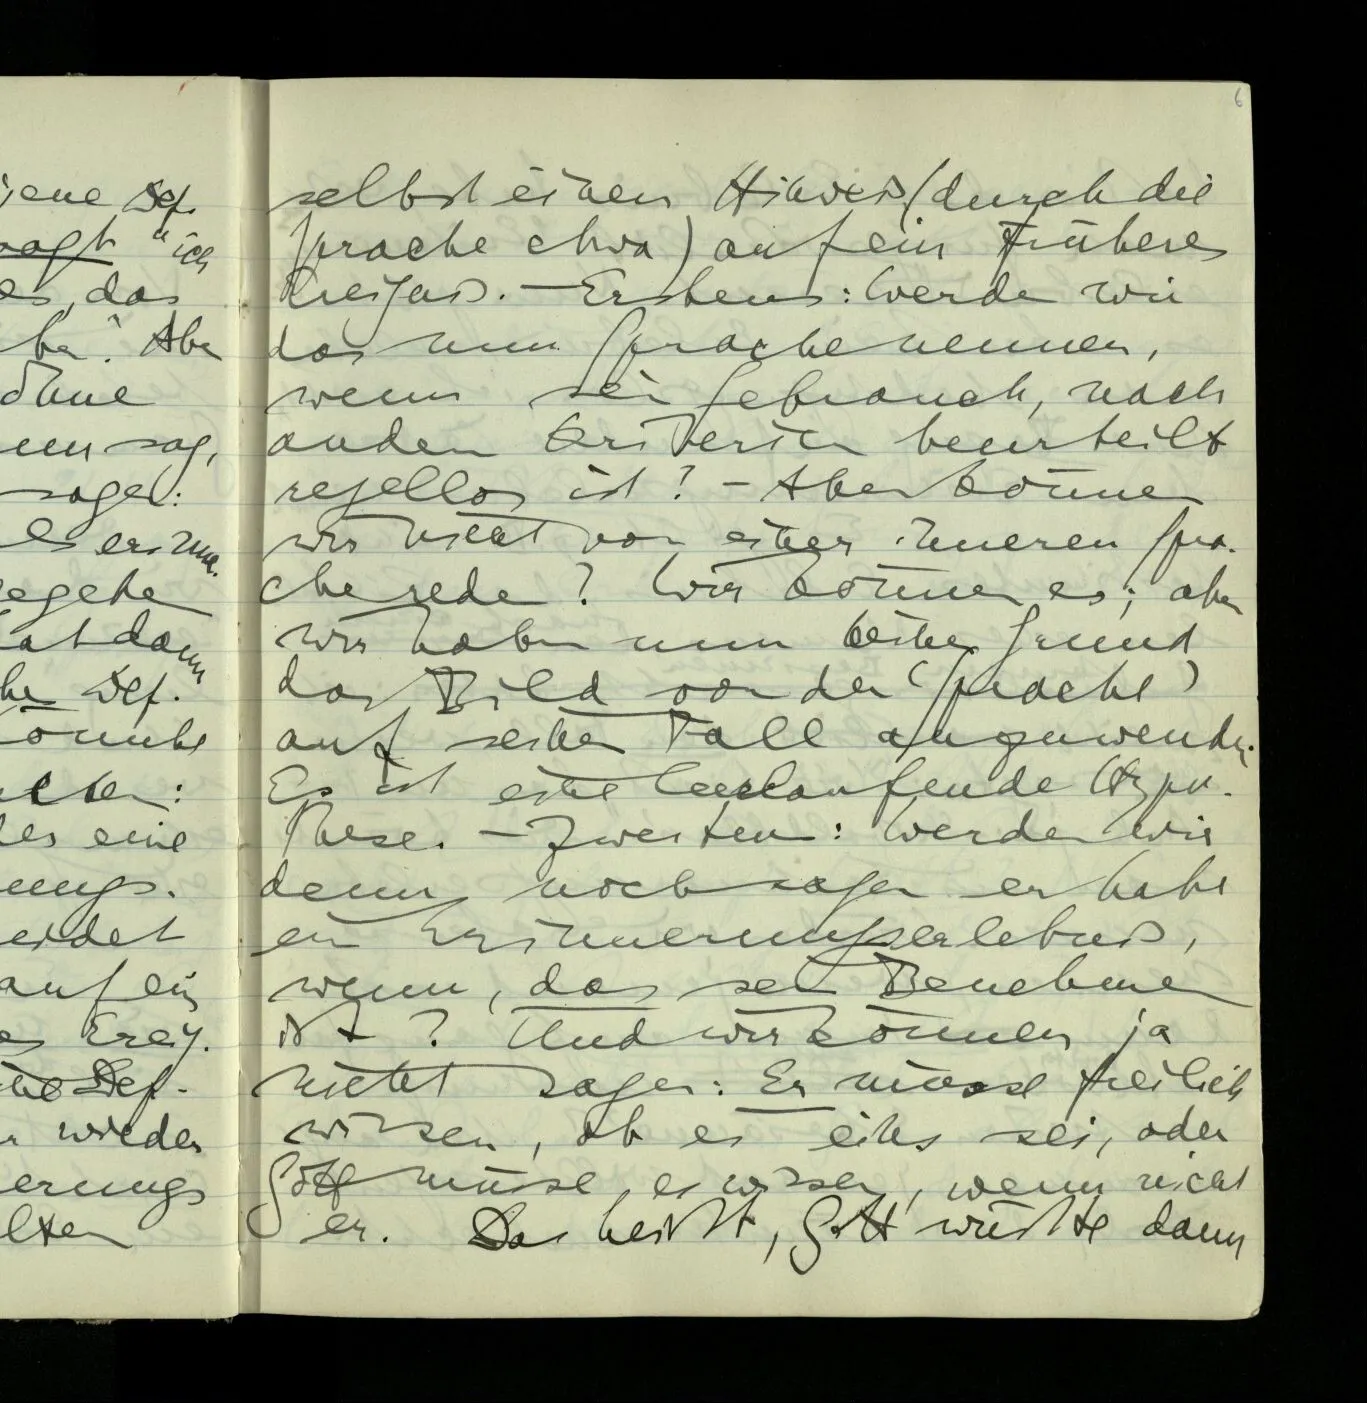 6
jene Def.
sagt "ich
es, das
be". Aber
ohne
nun sag,
sage:
es erinne-
gegebe
hat dann
he Def.
könnte
eine
ungs-
eidet
auf ein
es Ereig-
Def-
wieder
erungs
lten
selbst einen Hinweis (durch die
Sprache etwa) auf ein früheres
Ereignis. – Erstens: Werden wir
das nun Sprache nennen,
wenn sein Gebrauch, nach
andern Kriterien beurteilt
regellos ist? – Aber können
wir nicht von einer inneren Spra-
che reden? Wir können es; aber
wir haben nun keinen Grund
das Bild von der ‘Sprache’
auf seinen Fall anzuwenden.
Es ist eine leerlaufende Hypo-
these. – Zweitens: Werden wir
denn noch sagen er habe
ein Erinnerungserlebnis,
wenn, das sein Benehmen
ist? Und wir können ja
nicht sagen: Er müsse freilich
wissen, ob es eins sei, oder
Gott müsse es wissen, wenn nicht
er. Das heißt, Gott wüßte dann